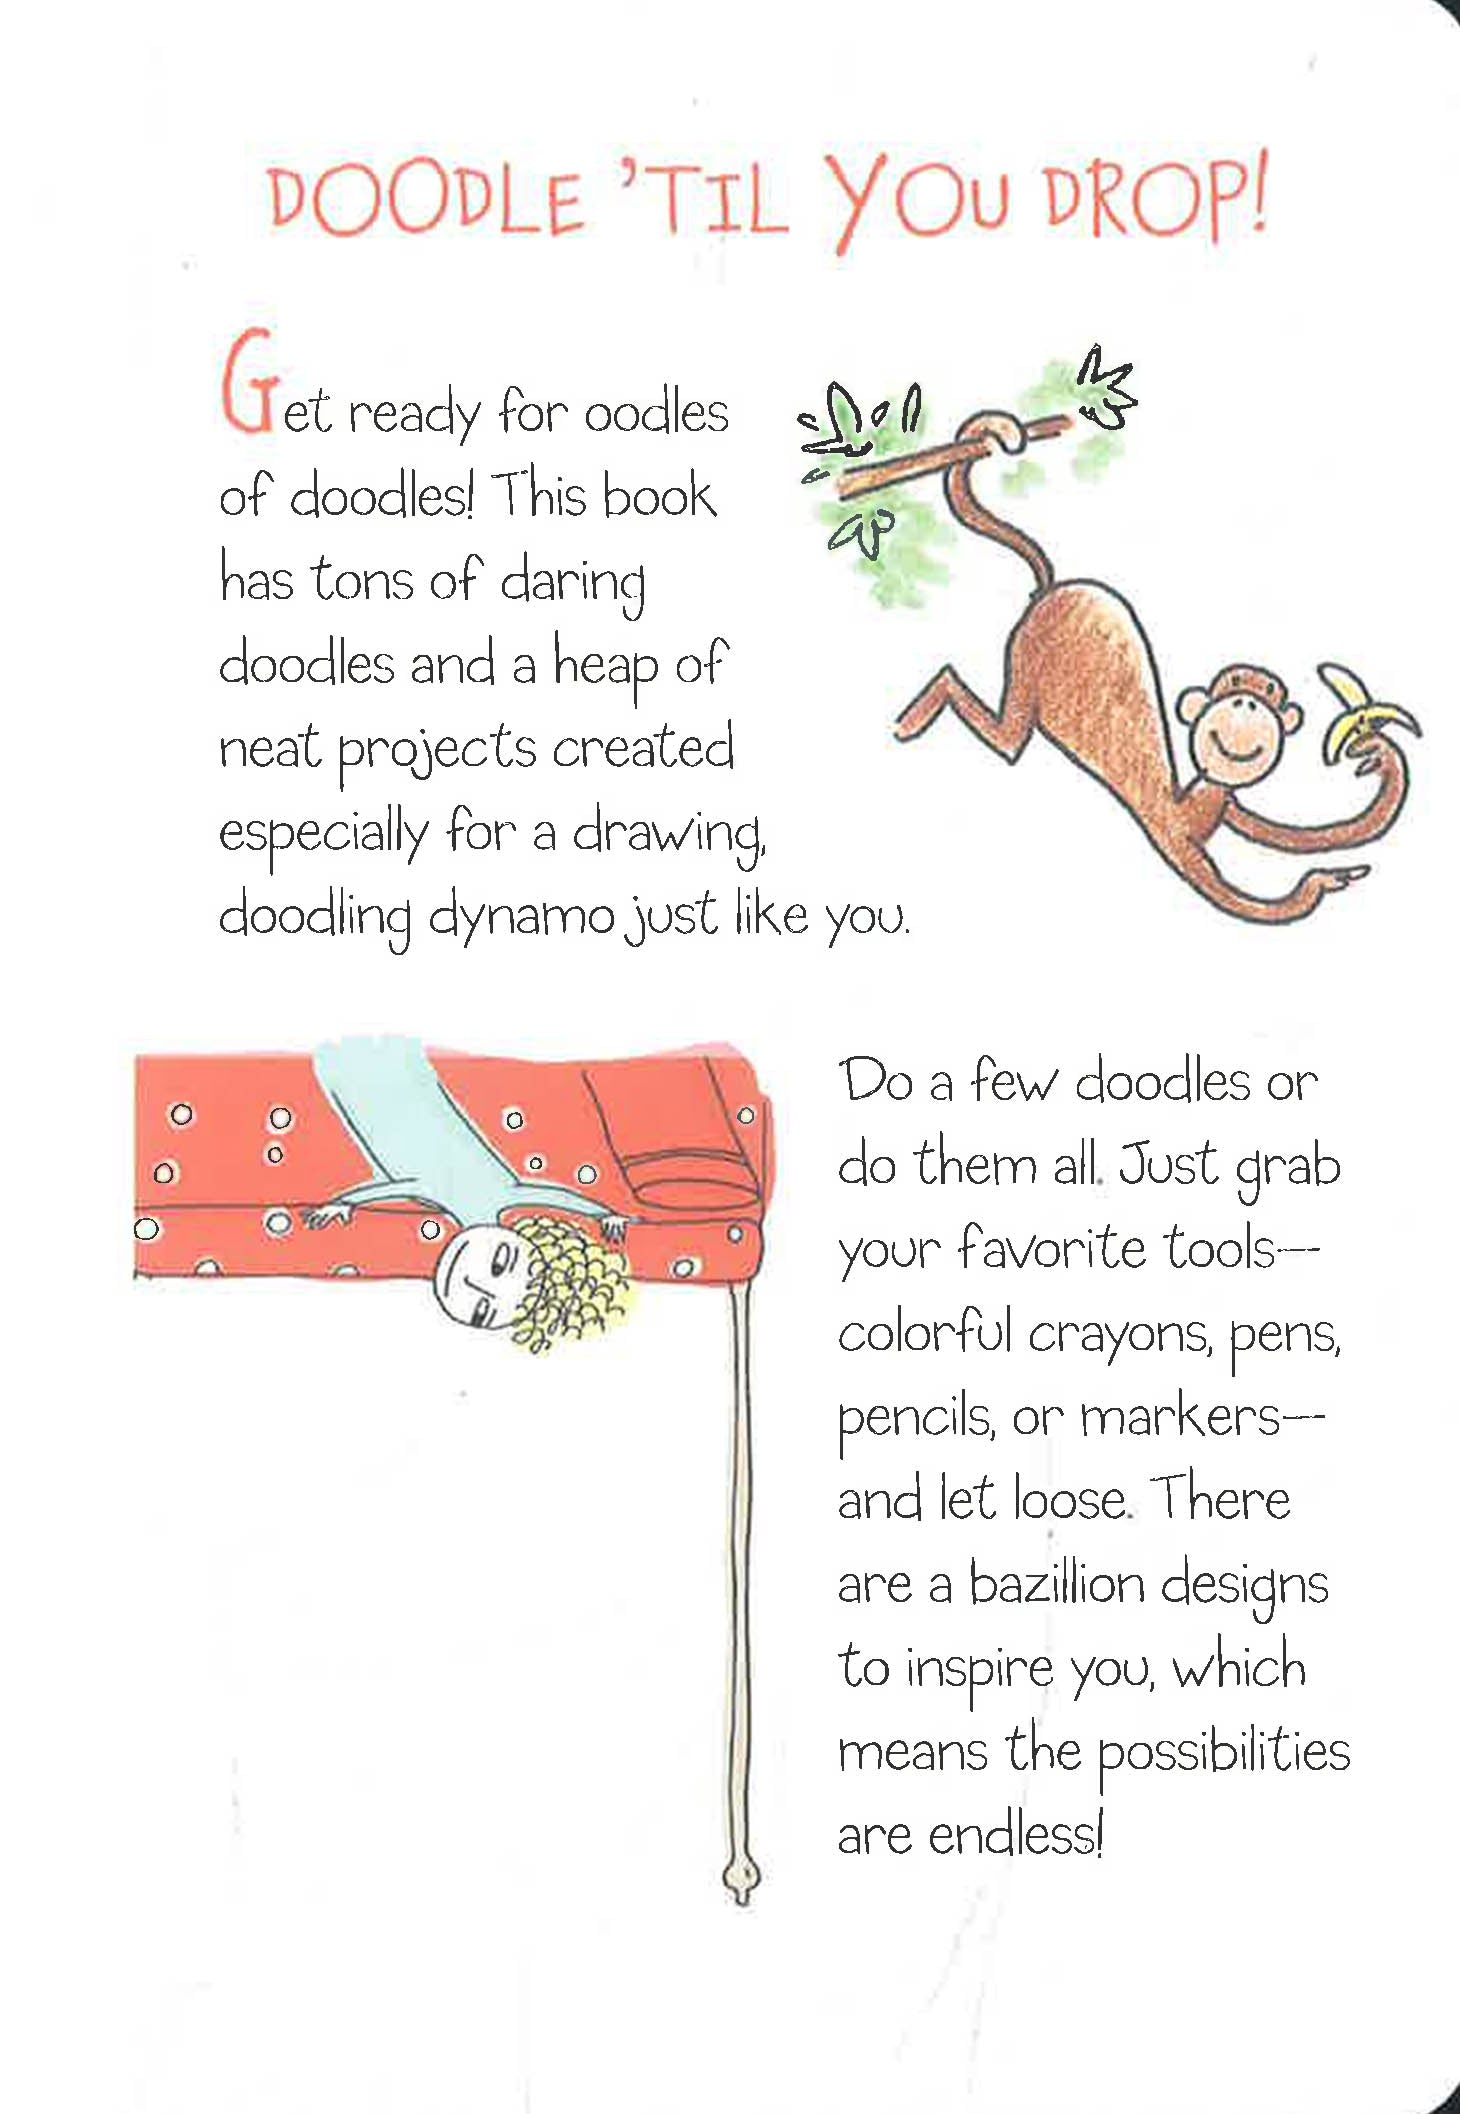 DOODLE 'TIL YOU DROP!
Get ready for oodles
of doodles! This book
has tons of daring
doodles and a heap of
neat projects created
especially for a drawing,
doodling dynamo just like you.
Do a few doodles or
do them all. Just grab
your favorite tools—
colorful crayons, pens,
pencils, or markers—
and let loose. There
are a bazillion designs
to inspire you, which
means the possibilities
are endless!